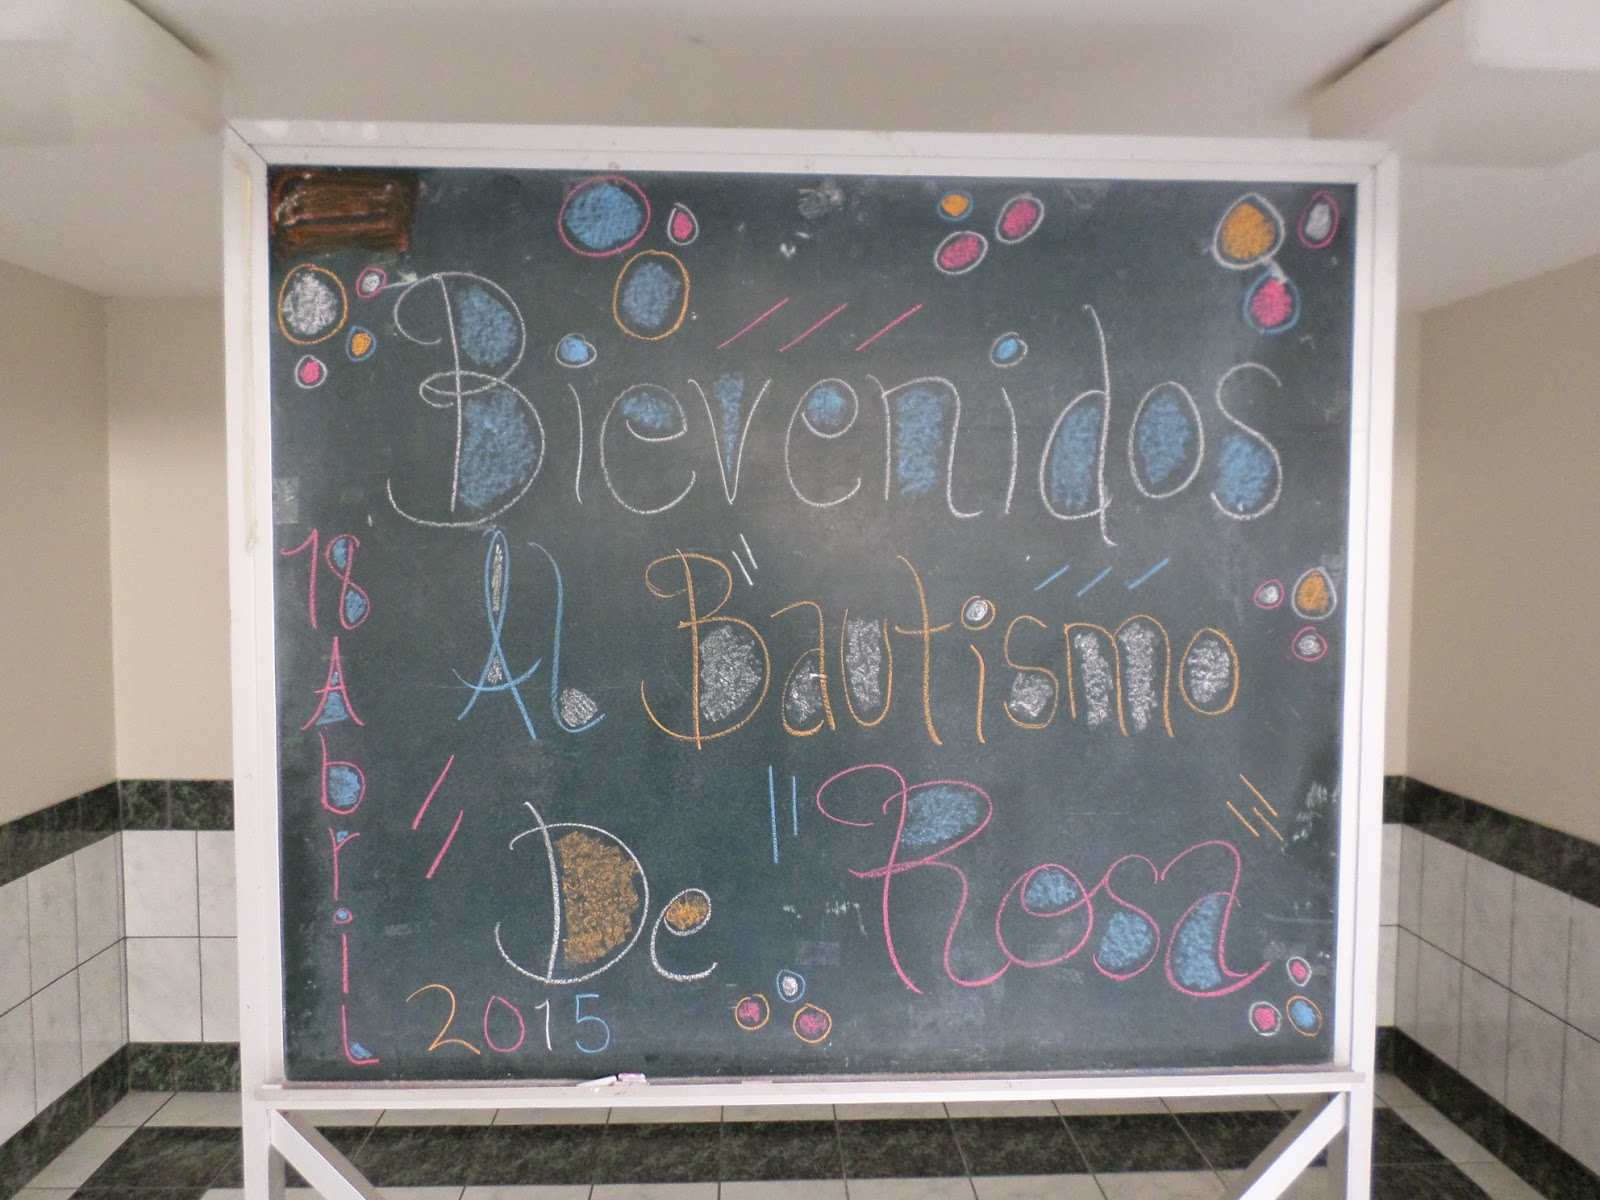 Bienvenidos
Al Bautismo
De Rosa
18 AbriL
2015